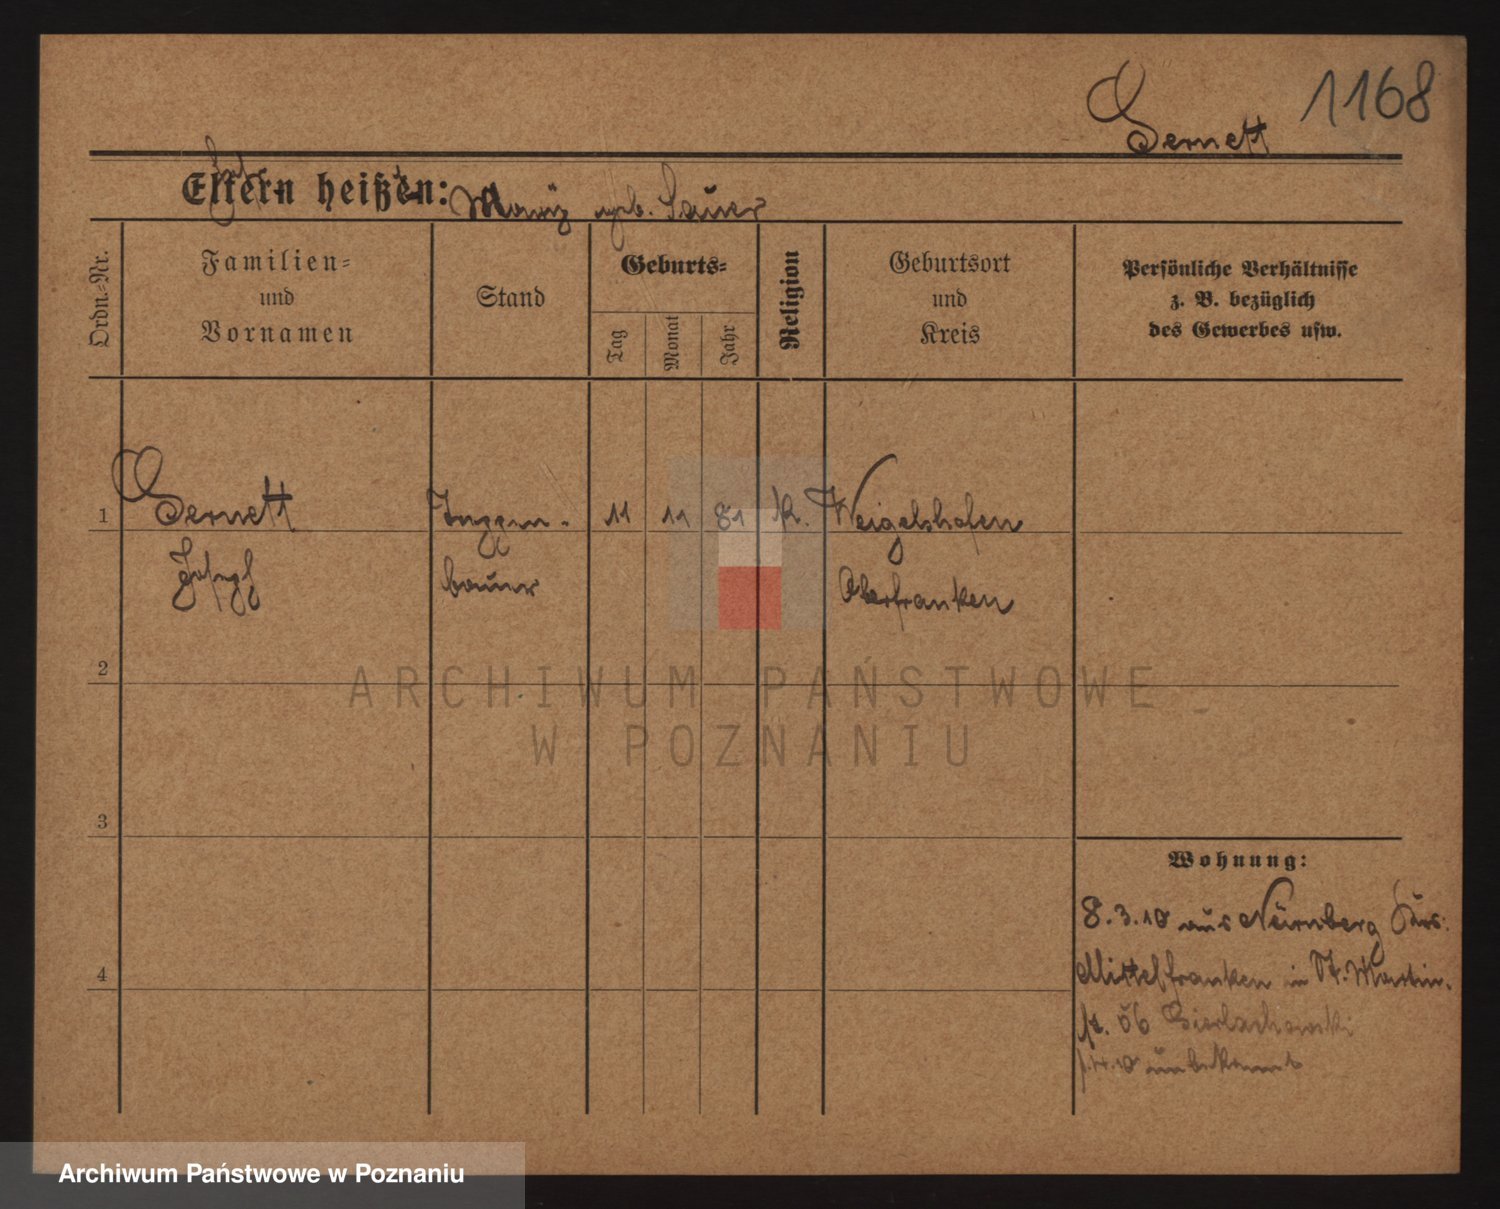 Sernett 1168
Eltern heißen: geb. Sauer
Ordn.-Nr.
Familien-
und
Vornamen
Stand
Geburts-
Tag
Monat
Jahr
Religion
Geburtsort
und
Kreis
Persönliche Verhältnisse
z. B. bezüglich
des Gewerbes usw.
1 Sernett 11 11 81 K. Weigelshofen
Josef bauer Oberfranken
2
3
4
Wohnung:
8.3.10 aus Nürnberg
Mittelfranken in St. Martin-
56
unbekannt
ARCHIWUM PAŃSTWOWE
W POZNANIU
Archiwum Państwowe w Poznaniu